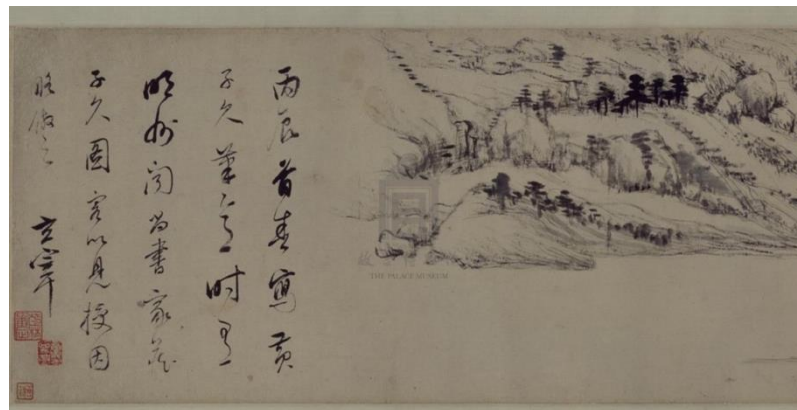 丙辰首春寫黃
子久筆意時有
明州聞尚書家藏
子久圖客以見授因
臨倣之 玄宰
THE PALACE MUSEUM